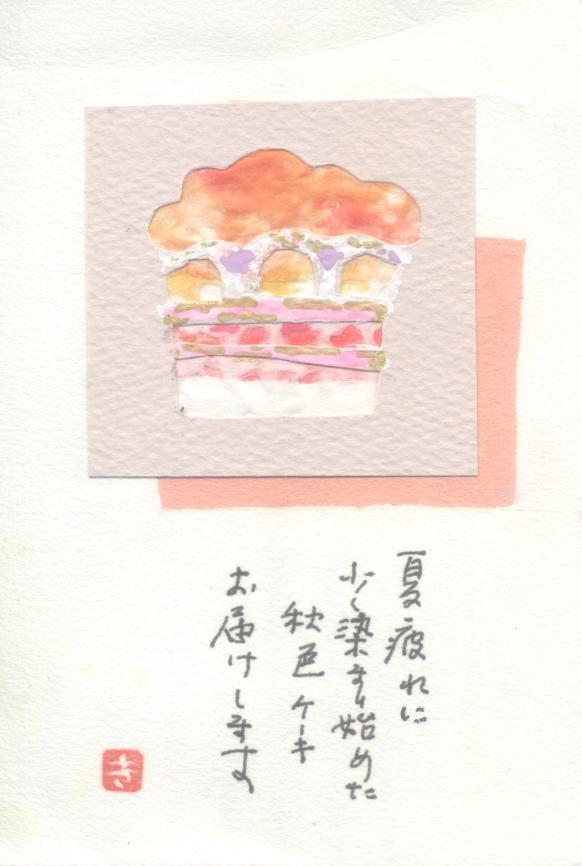 夏疲れに
少し染まり始めた
秋色ケーキ
お届けします